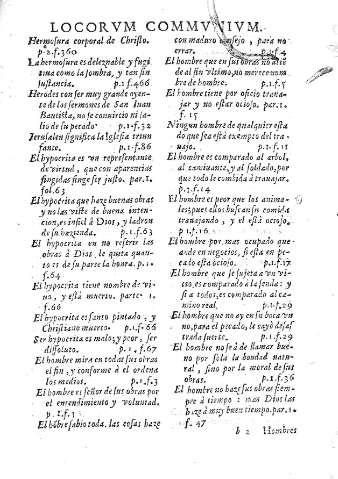 LOCORVM COMMVNIVM.
Hermosura corporal de Christo.
p.2.f.360
La hermosura es deleznable y fugi
tiua como la sombra, y tan sin
sustancia. p.1.f.466
Herodes con ser muy grande oyen-
te de los sermones de San Iuan
Bautista, no se conuirtio ni sa-
lio de su pecado p.1.f.32
Jerusalen significa la Iglesia triun
fante. p.1.f.86
El hypocrita es vn representante
de virtud, que con apariencias
fingidas finge ser justo. par.1.
fol.63
El hypocrita que haze buenas obras
y no las viste de buena inten-
cion, es infiel à Dios, y ladron
de su hazienda. p.1.f.63
El hypocrita en no referir las
obras à Dios, le quita quan-
to es de su parte la honra. p.1.
f.64
El hypocrita tiene nombre de vi-
uo, y està muerto. parte 1.
f.66
El hypocrita es santo pintado, y
Christiano muerto. p.1.f.66
Ser hypocrita es malo; y peor, ser
dissoluto. p.1.f.67
El hombre mira en todas sus obras
el fin, y conforme à el ordena
los medios. p.1.f.3
El hombre es señor de sus obras por
el entendimiento y voluntad.
p.1.f.3
El hõbre sabio toda, las cosas haze
con maduro consejo, para no
errar. p.1.f.4
El hombre que en sus obras no
al fin vltimo, no merece nom-
bre de hombre. p.1.f.5
El hombre tiene por oficio traba-
jar y no estar ocioso. par.1.
f.15
Ningun hombre de qualquier esta
do que sea està exempto del tra-
uajo. p.1.f.11
El hombre es comparado al arbol,
al caminante, y al soldado, por
que todo le combida à trauajar.
p.1.f.14
El hombre es peor que los anima-
les; pues ellos buscan su comida
trauajando, y el està ocioso.
p.1.f.16
El hombre por mas ocupado que
ande en negocios, si està en pe-
cado està ocioso. p.1.f.17
El hombre que se sujeta a vn vi-
cio, es comparado à la senda: y
si a todos, es comparado al ca-
mino real. p.1.f.29
El hombre que no ay en su boca vn
no, para el pecado, le cayò desas
trada suerte. p.1.f.29
El hombre no se à de llamar bue-
no por sola la bondad natu-
ral, sino por la moral de sus
obras. p.1.f.36
El hombre no haze sus obras siem-
pre à tiempo: mas Dios las
haze à muy buen tiempo. par.1.
f.47
b 2 Hombres